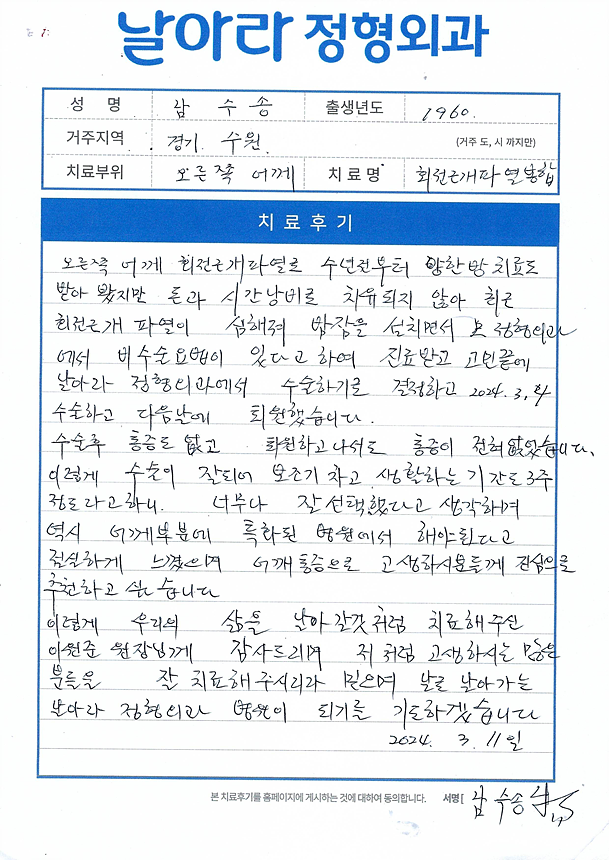 날아라 정형외과
성 명 남 수 송 출생년도 1960.
거주지역 경기 수원 (거주 도, 시 까지만)
치료부위 오른쪽 어께 치 료 명 회전근개파열봉합
치 료 후 기
오른쪽 어께 회전근개파열로 수년전부터 양한방치료도
받아 왔지만 돈과 시간낭비로 치유되지 않아 최근
회전근개 파열이 심해져 밤잠을 설치면서 모 정형외과
에서 비수술요법이 있다고 하여 진료받고 고민끝에
날아라 정형외과에서 수술하기로 결정하고 2024. 3,
수술하고 다음날에 퇴원했습니다.
수술후 통증도 없고 퇴원하고나서도 통증이 전혀없었습니다.
이렇게 수술이 잘되어 보조기 차고 생활하는 기간도 3주
정도라고하니. 너무나 잘선택했다고 생각하며
역시 어께부분에 특화된 병원에서 해야된다고
절실하게 느꼈으며 어깨통증으로 고생하시분들께 진심으로
추천하고 싶습니다
이렇게 우리의 삶을 날아갈것처럼 치료해주신
이원준 원장님께 감사드리며 저처럼 고생하시는 많은
분들을 잘 치료해주시리라 믿으며 날로 날아가는
날아라 정형외과 병원이 되기를 기도하겠습니다
2024. 3. 11일
본 치료후기를 홈페이지에 게시하는 것에 대하여 동의합니다. 서명 [ 남 수송